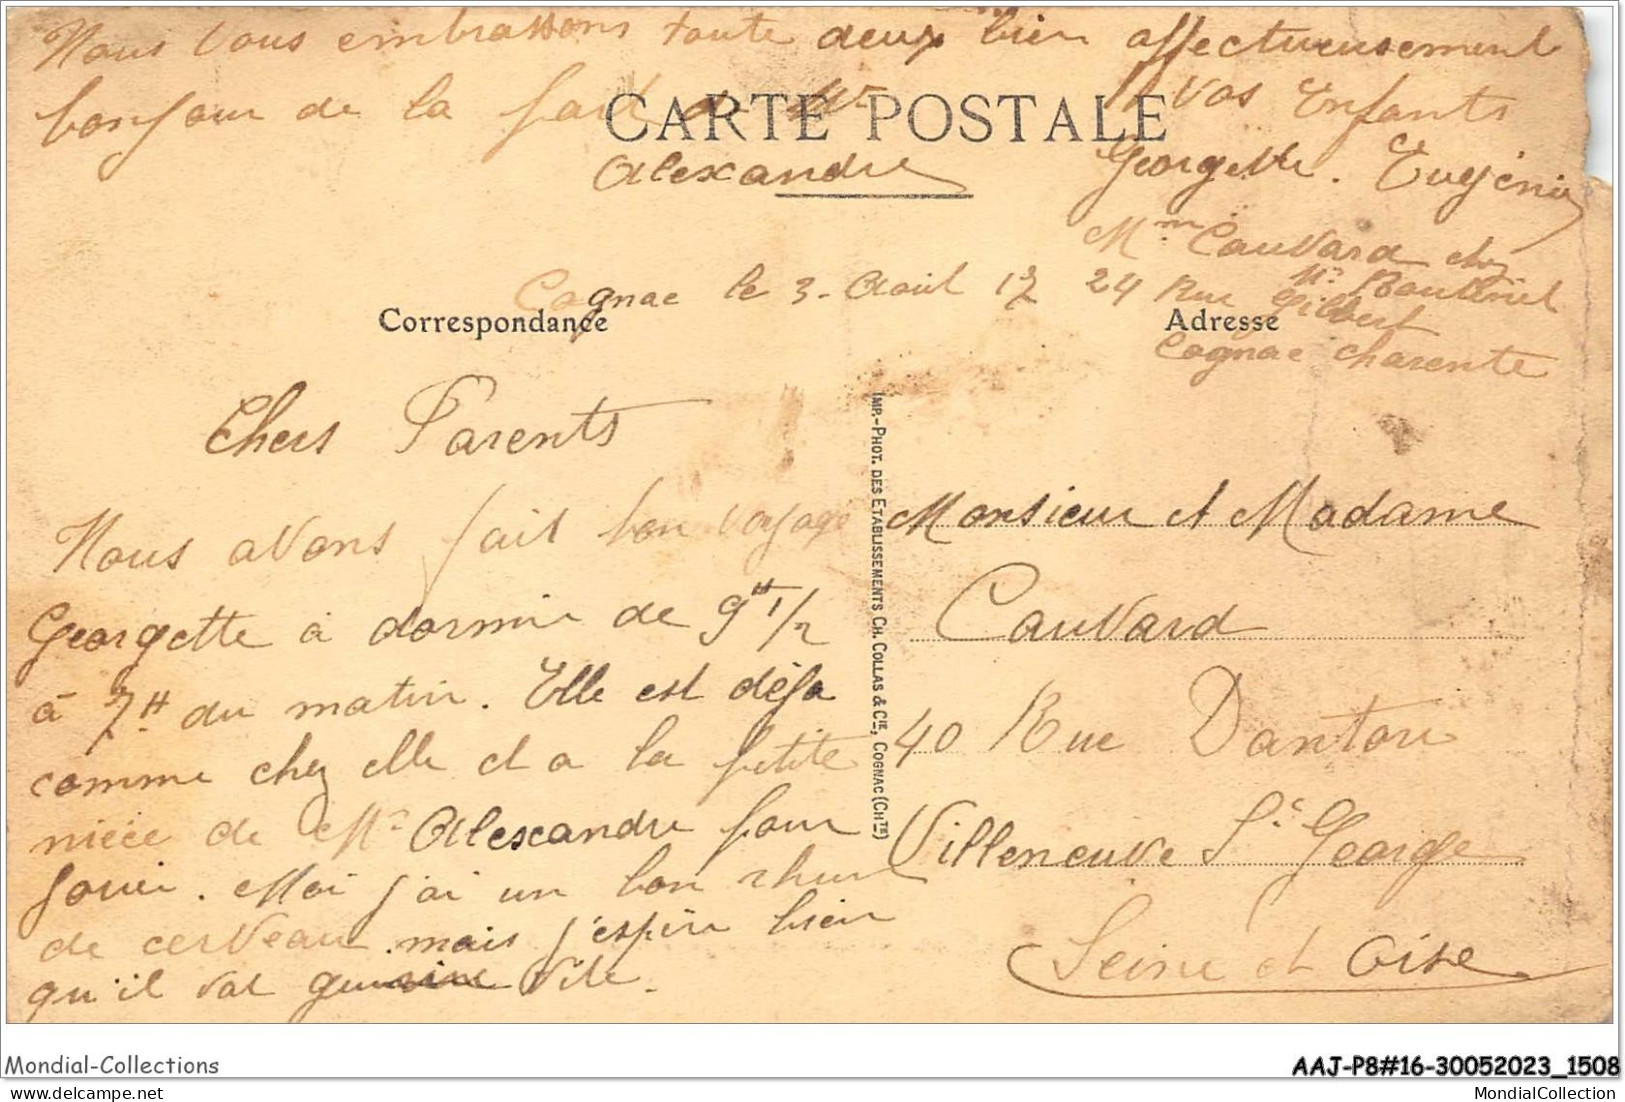 Nous vous embrassons toute deux bien affectueusement
bonjour de la part de Mr
Alexandre
Vos Enfants
Georgette. Eugénie
CARTE POSTALE
Mme Cauvard chez
Mr
24 Rue Gilbert
Cognac Charente
Cognac le 3. Aout 17
Correspondance
Adresse
Chers Parents
Nous avons fait bon voyage
Georgette à dormir de 9H 1/2
à 7H du matin. Elle est déja
comme chez elle et a la petite
nièce de Mr Alexandre pour
jouer. Moi j'ai un bon rhume
de cerveau mais j'espère bien
qu'il vat vite.
IMP.-PHOT. DES ETABLISSEMENTS CH. COLLAS & CIE, COGNAC (CHTE)
Monsieur et Madame
Cauvard
40 Rue Danton
Villeneuve St George
Seine et Oise
Mondial-Collections
AAJ-P8#16-30052023_1508
MondialCollection